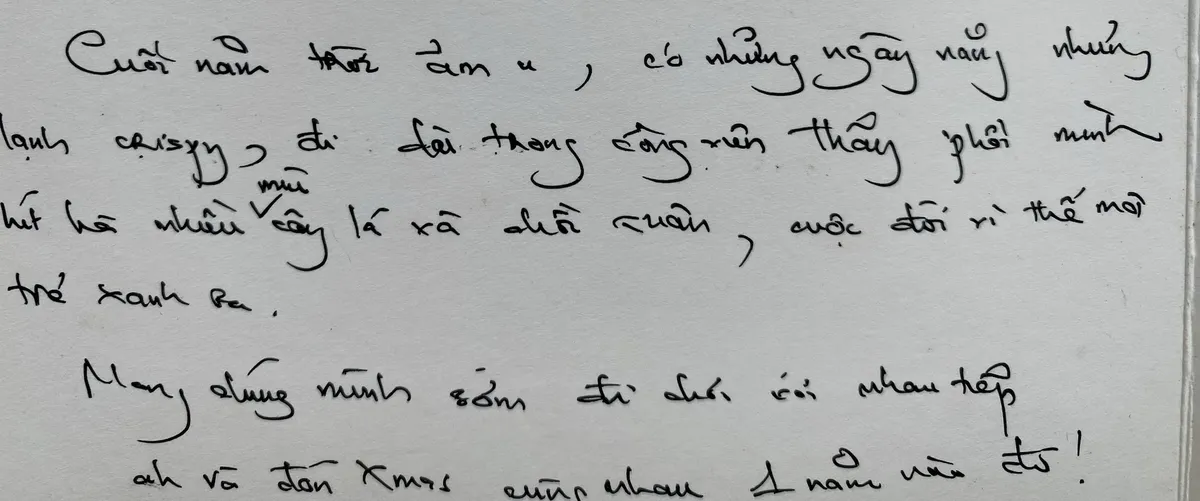 Cuối năm trời ảm u, có những ngày nắng nhưng
lạnh crispy, đi dài trong công viên thấy phổi mình
hít hà nhiều mùi cây lá xả chồi xuân, cuộc đời vì thế mới
trẻ xanh ra.
Mong chúng mình sớm đi chơi với nhau tiếp
ah và đón Xmas cùng nhau 1 năm nào đó!